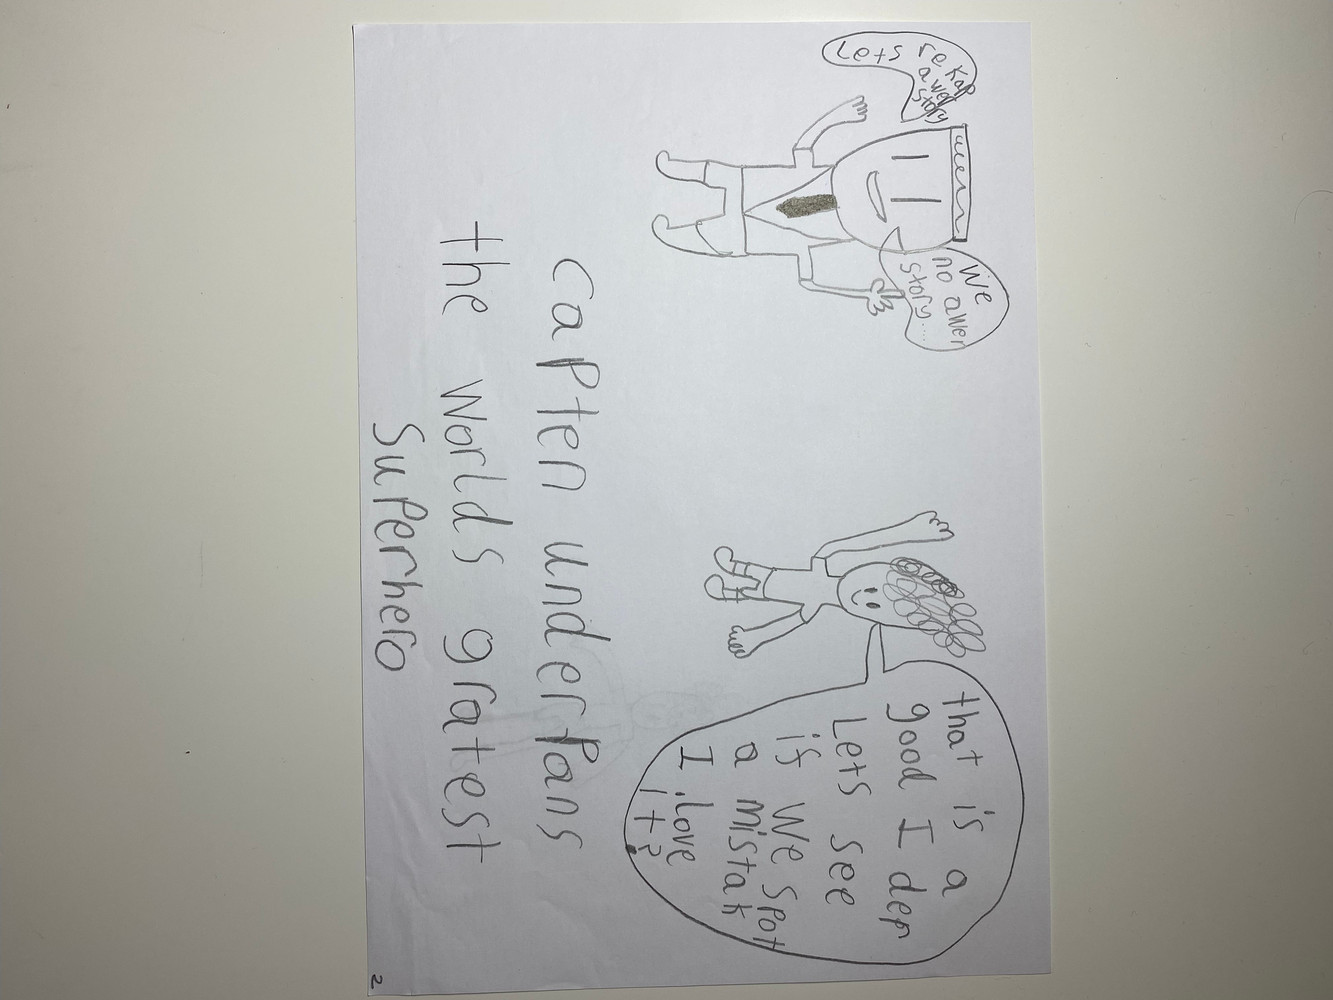 Lets rekap
awer
story
We
no awer
story...
that is a
good I der
Lets see
if we spot
a mistak
I love
it?
capten underpans
the worlds gratest
superhero
2